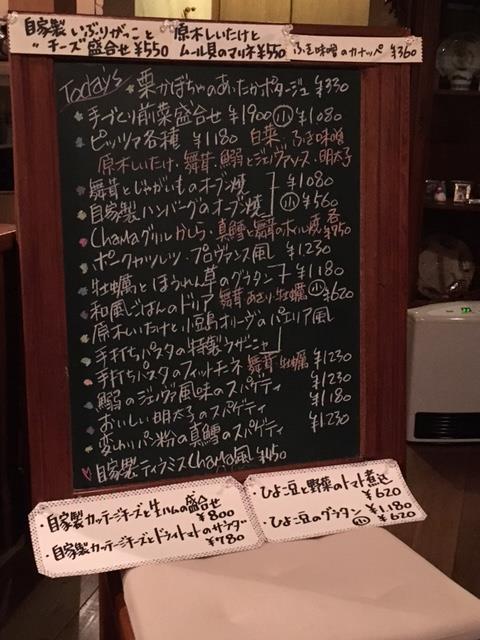 自家製いぶりがっこと
チーズ盛合せ¥550
原木しいたけと
ムール貝のマリネ¥550
ふき味噌のカナッペ ¥360
Todays 栗かぼちゃのあったかポタージュ ¥330
手づくり前菜盛合せ ¥1900 小 ¥1080
ピッツァ各種 ¥1180 白菜、ふき味噌
原木しいたけ・舞茸・鰯とジェノヴァソース・明太子
舞茸とじゃがいものオーブン焼 ¥1080
自家製ハンバーグのオーブン焼 小 ¥560
Chamaグリル かしら・真鱈と舞茸のホイル焼 各¥950
ポークカツレツ・プロヴァンス風 ¥1230
牡蠣とほうれん草のグラタン ¥1180
和風ごはんのドリア 舞茸 あさり 牡蠣 小 ¥620
原木しいたけと小豆島オリーブのパエリア風
手打ちパスタの特製ラザニャ
手打ちパスタのフィットチーネ 舞茸・牡蠣 ¥1230
鰯のジェノヴァ風味のスパゲティ ¥1230
おいしい明太子のスパゲティ ¥1180
変わりパン粉の真鱈のスパゲティ ¥1230
自家製ティラミスChama風 ¥450
・自家製カッテージチーズと生ハムの盛合せ
¥800
・自家製カッテージチーズとドライトマトのサラダ
¥780
・ひよこ豆と野菜のトマト煮込
¥620
・ひよこ豆のグラタン ¥1180
小 ¥620